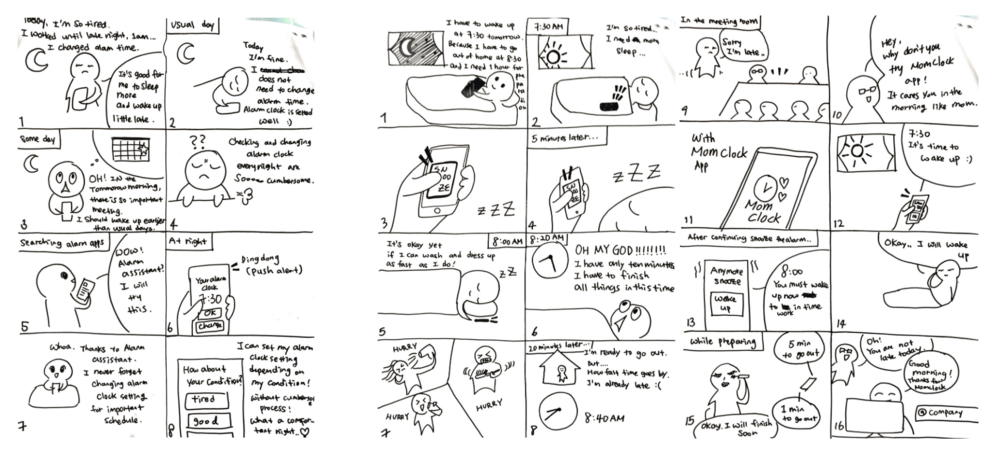 Today, I'm so tired.
I worked until late night, 1am...
I changed alarm time.
It's good for
me to sleep
more
and wake up
little late.
1
Usual day
Today
I'm fine.
I
does not
need to change
alarm time.
Alarm clock is setted
well :)
2
Some day
OH! IN the
Tommorow morning,
there is so important
meeting.
I should wake up earlier
than usual days.
3
??
Checking and changing
alarm clock
every night are
Soooo cumbersome.
4
Searching alarm apps
WOW!
Alarm
assistant!
I will
try
this.
5
At night
Ding dong
(push alert)
Your alarm
clock
7:30
OK
Change
6
Whoa. Thanks to Alarm
assistant.
I never forget
changing alarm
clock setting
for important
schedule.
7
How about
your Condition?
tired
good
I can set my alarm
clock setting
depending on
my Condition!
Without cumbersome
process!
What a comfor-
tant night..♡
8
I have to wake up
at 7:30 tomorrow.
Because I have to go
out at home at 8:30
and I need 1 hour for
1
7:30 AM
I'm so tired..
I need more
sleep...
2
SN
OO
ZE
zzZ
3
5 minutes later...
SN
OO
ZE
zzZ
4
It's okay yet
if I can wash and dress up
as fast as I do!
8:00 AM
zz
5
8:20 AM
OH MY GOD!!!!!!!!
I have only ten minutes
I have to finish
all things in this time
6
HURRY
HURRY
HURRY
7
20 minutes later...
I'm ready to go out.
But....
How fast time goes by.
I'm already late :(
8:40 AM
8
In the meeting room
Sorry
I'm late..
9
Hey,
why don't you
try MomClock
app!
It cares you in the
morning like mom.
10
With
MomClock
App
Mom
Clock
11
7:30
It's time to
wake up :)
12
After continuing snooze the alarm..
Anymore
snooze
wake
up
8:00
You must wake
up now
to in time
work
13
Okay.. I will wake
up
14
While preparing
5 min
to go out
1 min
to go out
Okay. I will finish
soon
15
Oh!
You are not
late today.
Good
morning!
Thanks for
MomClock
@ Company
16